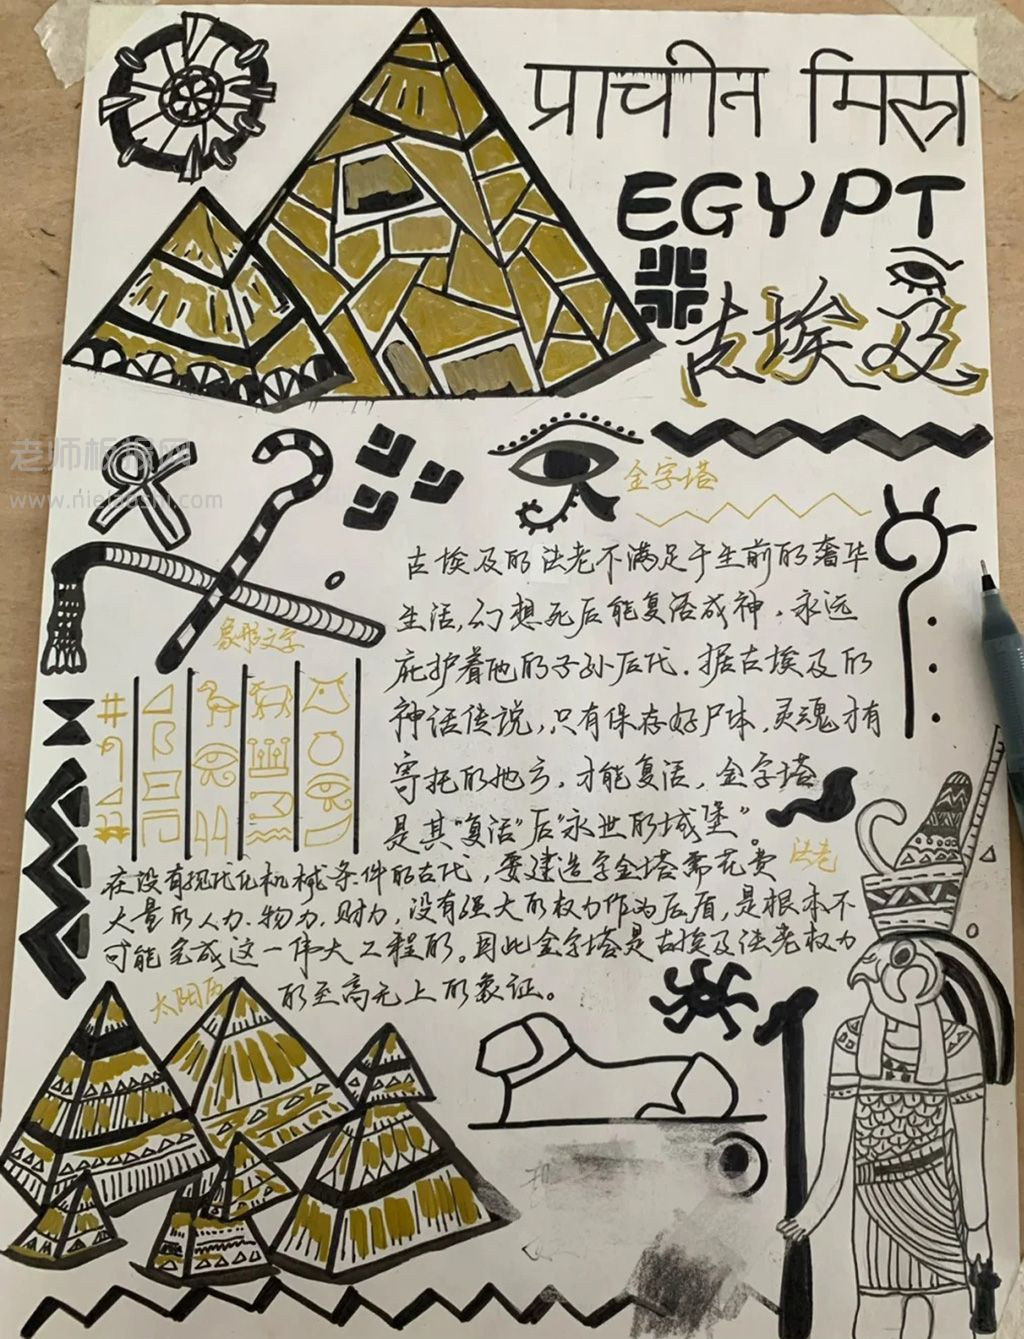 प्राचीन मिस्र
EGYPT
古埃及
老师板报网
www.nielaoshi.com
金字塔
古埃及的法老不满足于生前的奢华
生活,幻想死后能复活成神,永远
庇护着他的子孙后代.据古埃及的
神话传说,只有保存好尸体,灵魂才有
寄托的地方,才能复活,金字塔
是其"复活"后"永世的城堡"。
象形文字
法老
在没有现代化机械条件的古代,要建造字金塔需花费
大量的人力、物力、财力,没有强大的权力作为后盾,是根本不
可能完成这一伟大工程的。因此金字塔是古埃及法老权力
的至高无上的象征。
太阳历